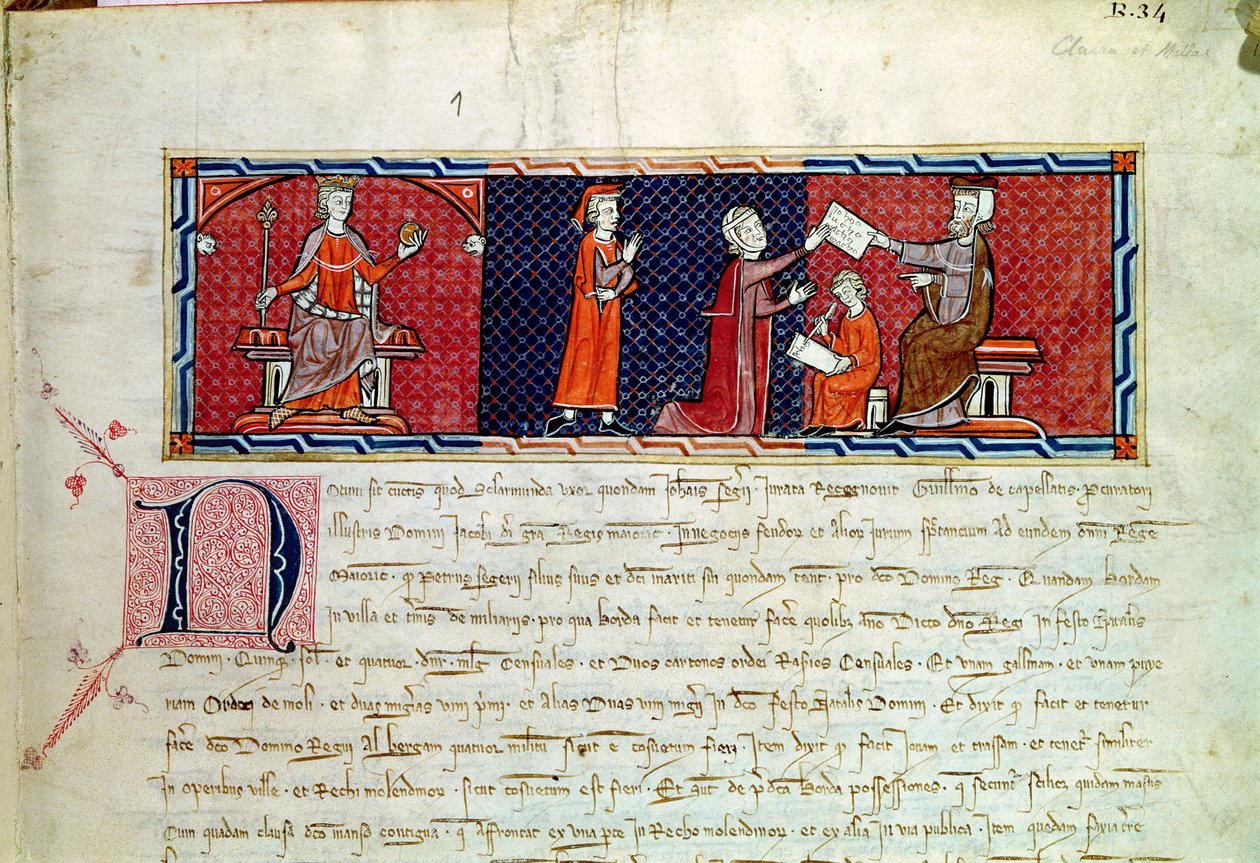 R.34
Claira et Millas
1
Notum sit cunctis quod Sclarmunda uxor quondam Joh̅ais seg̅ii · Jurata Recognovit Guill̅mo de capellatis · Pcuratori
illustris Domini Jacobi di̅ gra̅ Regis maioric̅ · In negocijs feudor̅ et alior̅ Jurium sp̅tancium Ad eundem dn̅m Rege̅
Maioric̅ · q̅ Petrus segerij filius suus et dc̅i mariti sui quondam tent̅ · pro dc̅o Domino Reg̅ · Quandam bordam
In villa et t̅mis de miliarijs · pro qua borda facit et tenetur fac̅e quolib̅ Anno Dicto dn̅o Regi In festo Natal̅s
Domini · Quinq̅ · sol̅ · et quatuor · dn̅r · ml̅g̅ Censuales · et Duos cartonos ordei Rasios Censuales · Et unam gallinam · et unam
Ordei de moli · et duas mig̅ias vini p̅mi · et Alias Duas vini mig̅ij In dc̅o Festo Natalis Domini · Et dixit q̅ facit et tenetur
fac̅e dc̅o Domino Regi Albergam quatuor militu̅ sicut e̅ co̅suetum fieri · Item dixit q̅ facit Jovam et trassam · et tenet̅ simil̅iter
In operibus ville · et Rechi molendinor̅ · sicut co̅suetum est fieri · Et su̅t de p̅dc̅a borda possessiones · q̅ secunt̅ · scilicz quidam mansus
Cum quadam clausa dc̅o manso contigua · q̅ Affrontat ex una p̅te In Recho molendinor̅ · et ex alia In via publica · Item quedam faxia t̅re